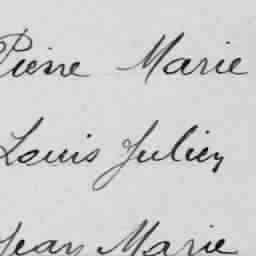 Pierre Marie
Louis Julien
Jean Marie